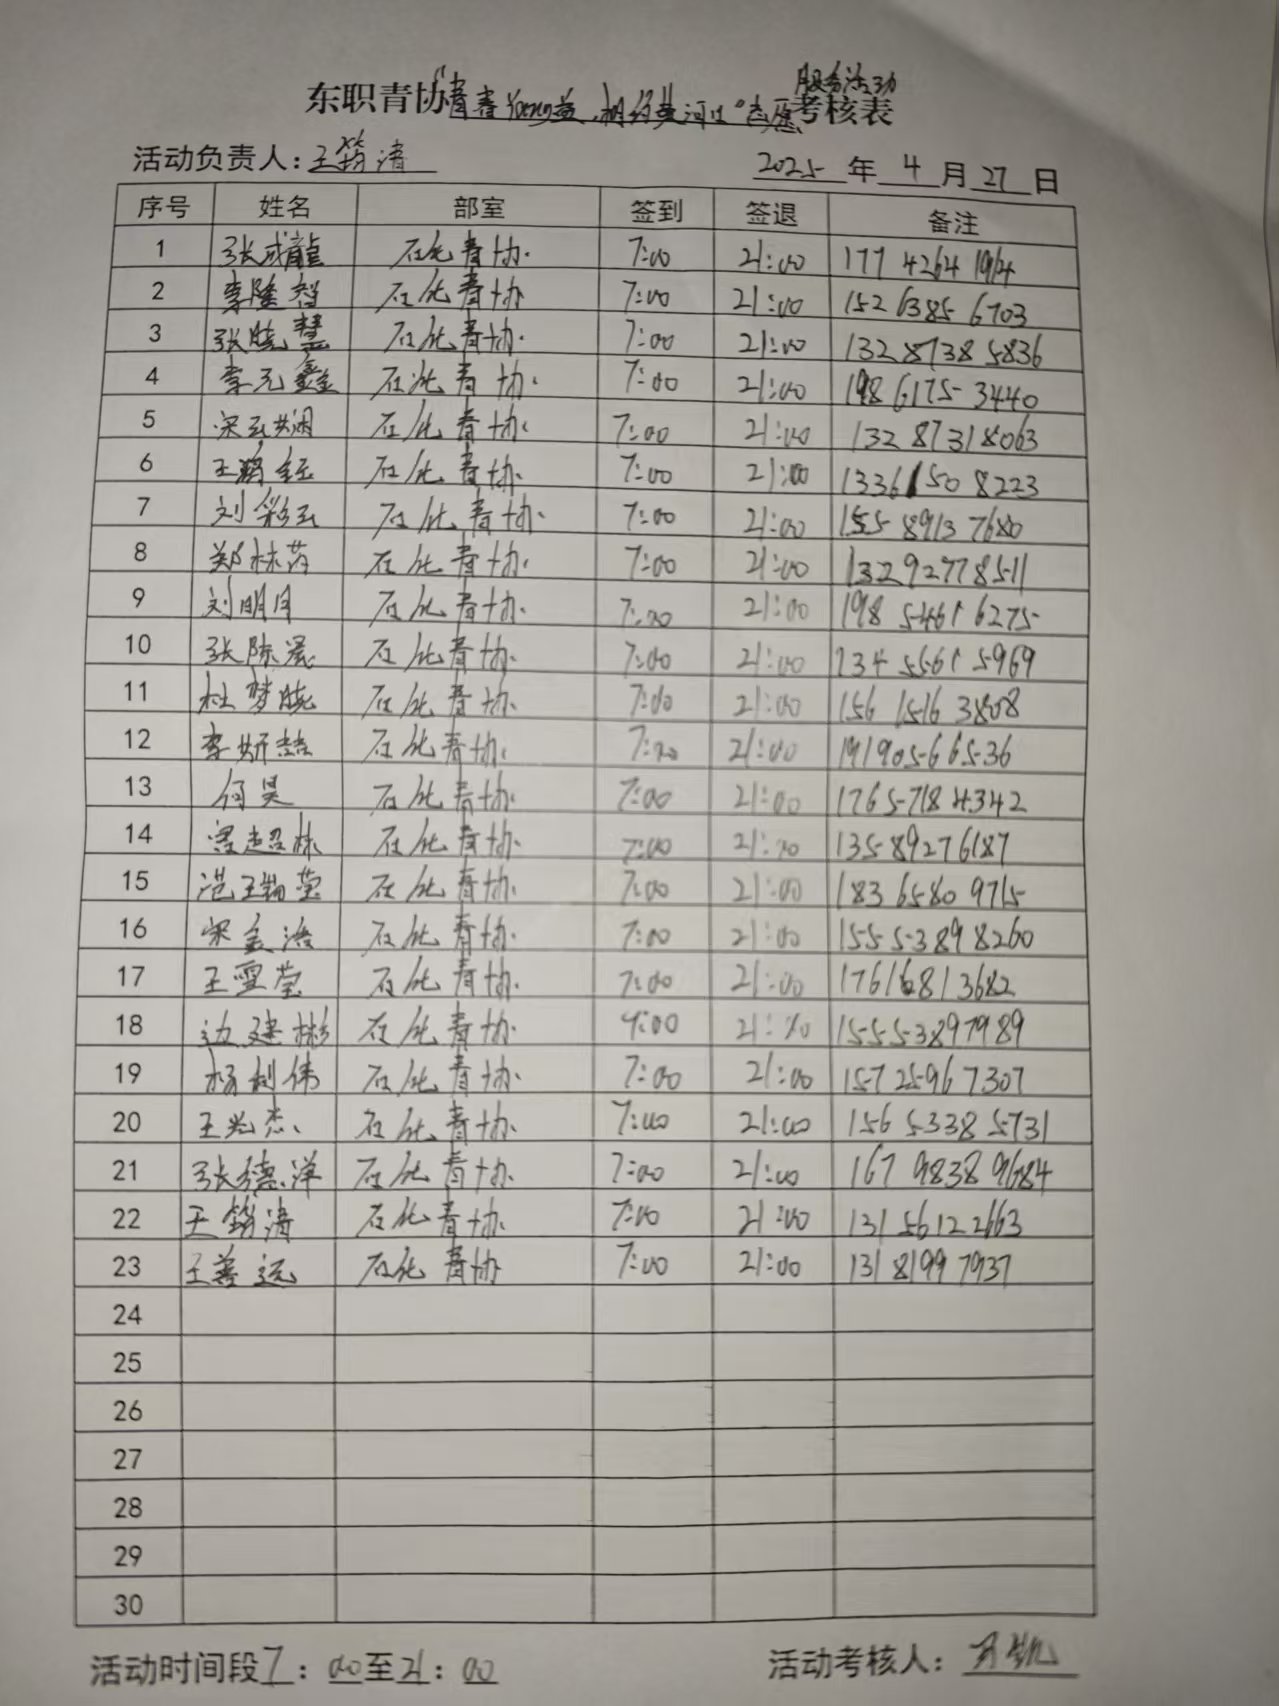 服务活动
东职青协"青春Young益,相约黄河口"志愿考核表
活动负责人：王筠清 2025年4月27日
序号 姓名 部室 签到 签退 备注
1 张成龍 石化青协. 7:00 21:00 177 4264 1914
2 李隆智 石化青协 7:00 21:00 152 6385 6703
3 张晓慧 石化青协. 7:00 21:00 132 8738 5836
4 李元鑫 石化青协. 7:00 21:00 198 6175 3440
5 石化青协. 7:00 21:00 132 8731 8063
6 石化青协. 7:00 21:00 1336150 8223
7 刘彩云 石化青协. 7:00 21:00 155 8913 7680
8 郑林芮 石化青协. 7:00 21:00 13292778511
9 刘明月 石化青协. 7:00 21:00 198 5461 6275
10 石化青协. 7:00 21:00 134 5561 5969
11 杜梦晓 石化青协. 7:00 21:00 156 1516 3808
12 石化青协. 7:00 21:00 19190566536
13 何昊 石化青协. 7:00 21:00 1765718 4342
14 石化青协. 7:00 21:00 13589276187
15 石化青协. 7:00 21:00 183 6580 9715
16 宋金浩 石化青协. 7:00 21:00 155 5389 8260
17 王雪莹 石化青协. 7:00 21:00 17616813682
18 边建彬 石化青协. 7:00 21:00 15553897989
19 杨利伟 石化青协. 7:00 21:00 15725967307
20 王兴杰 石化青协. 7:00 21:00 156 5338 5731
21 张德洋 石化青协. 7:00 21:00 167 9838 9684
22 王筠清 石化青协. 7:00 21:00 131 5612 2663
23 王善远 石化青协 7:00 21:00 131 8199 7937
24
25
26
27
28
29
30
活动时间段7：00至21：00 活动考核人：